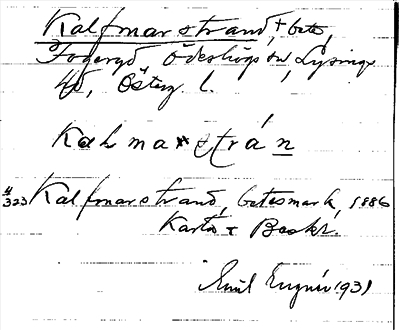 Kalfmarstrand, + bete,
Fogeryd Ödeshögs sn, Lysings
hd, Österg. l.
Kalmarstrán
4/323 Kalfmarstrand, betesmark, 1886
Karta + Beskr.
Emil 1931